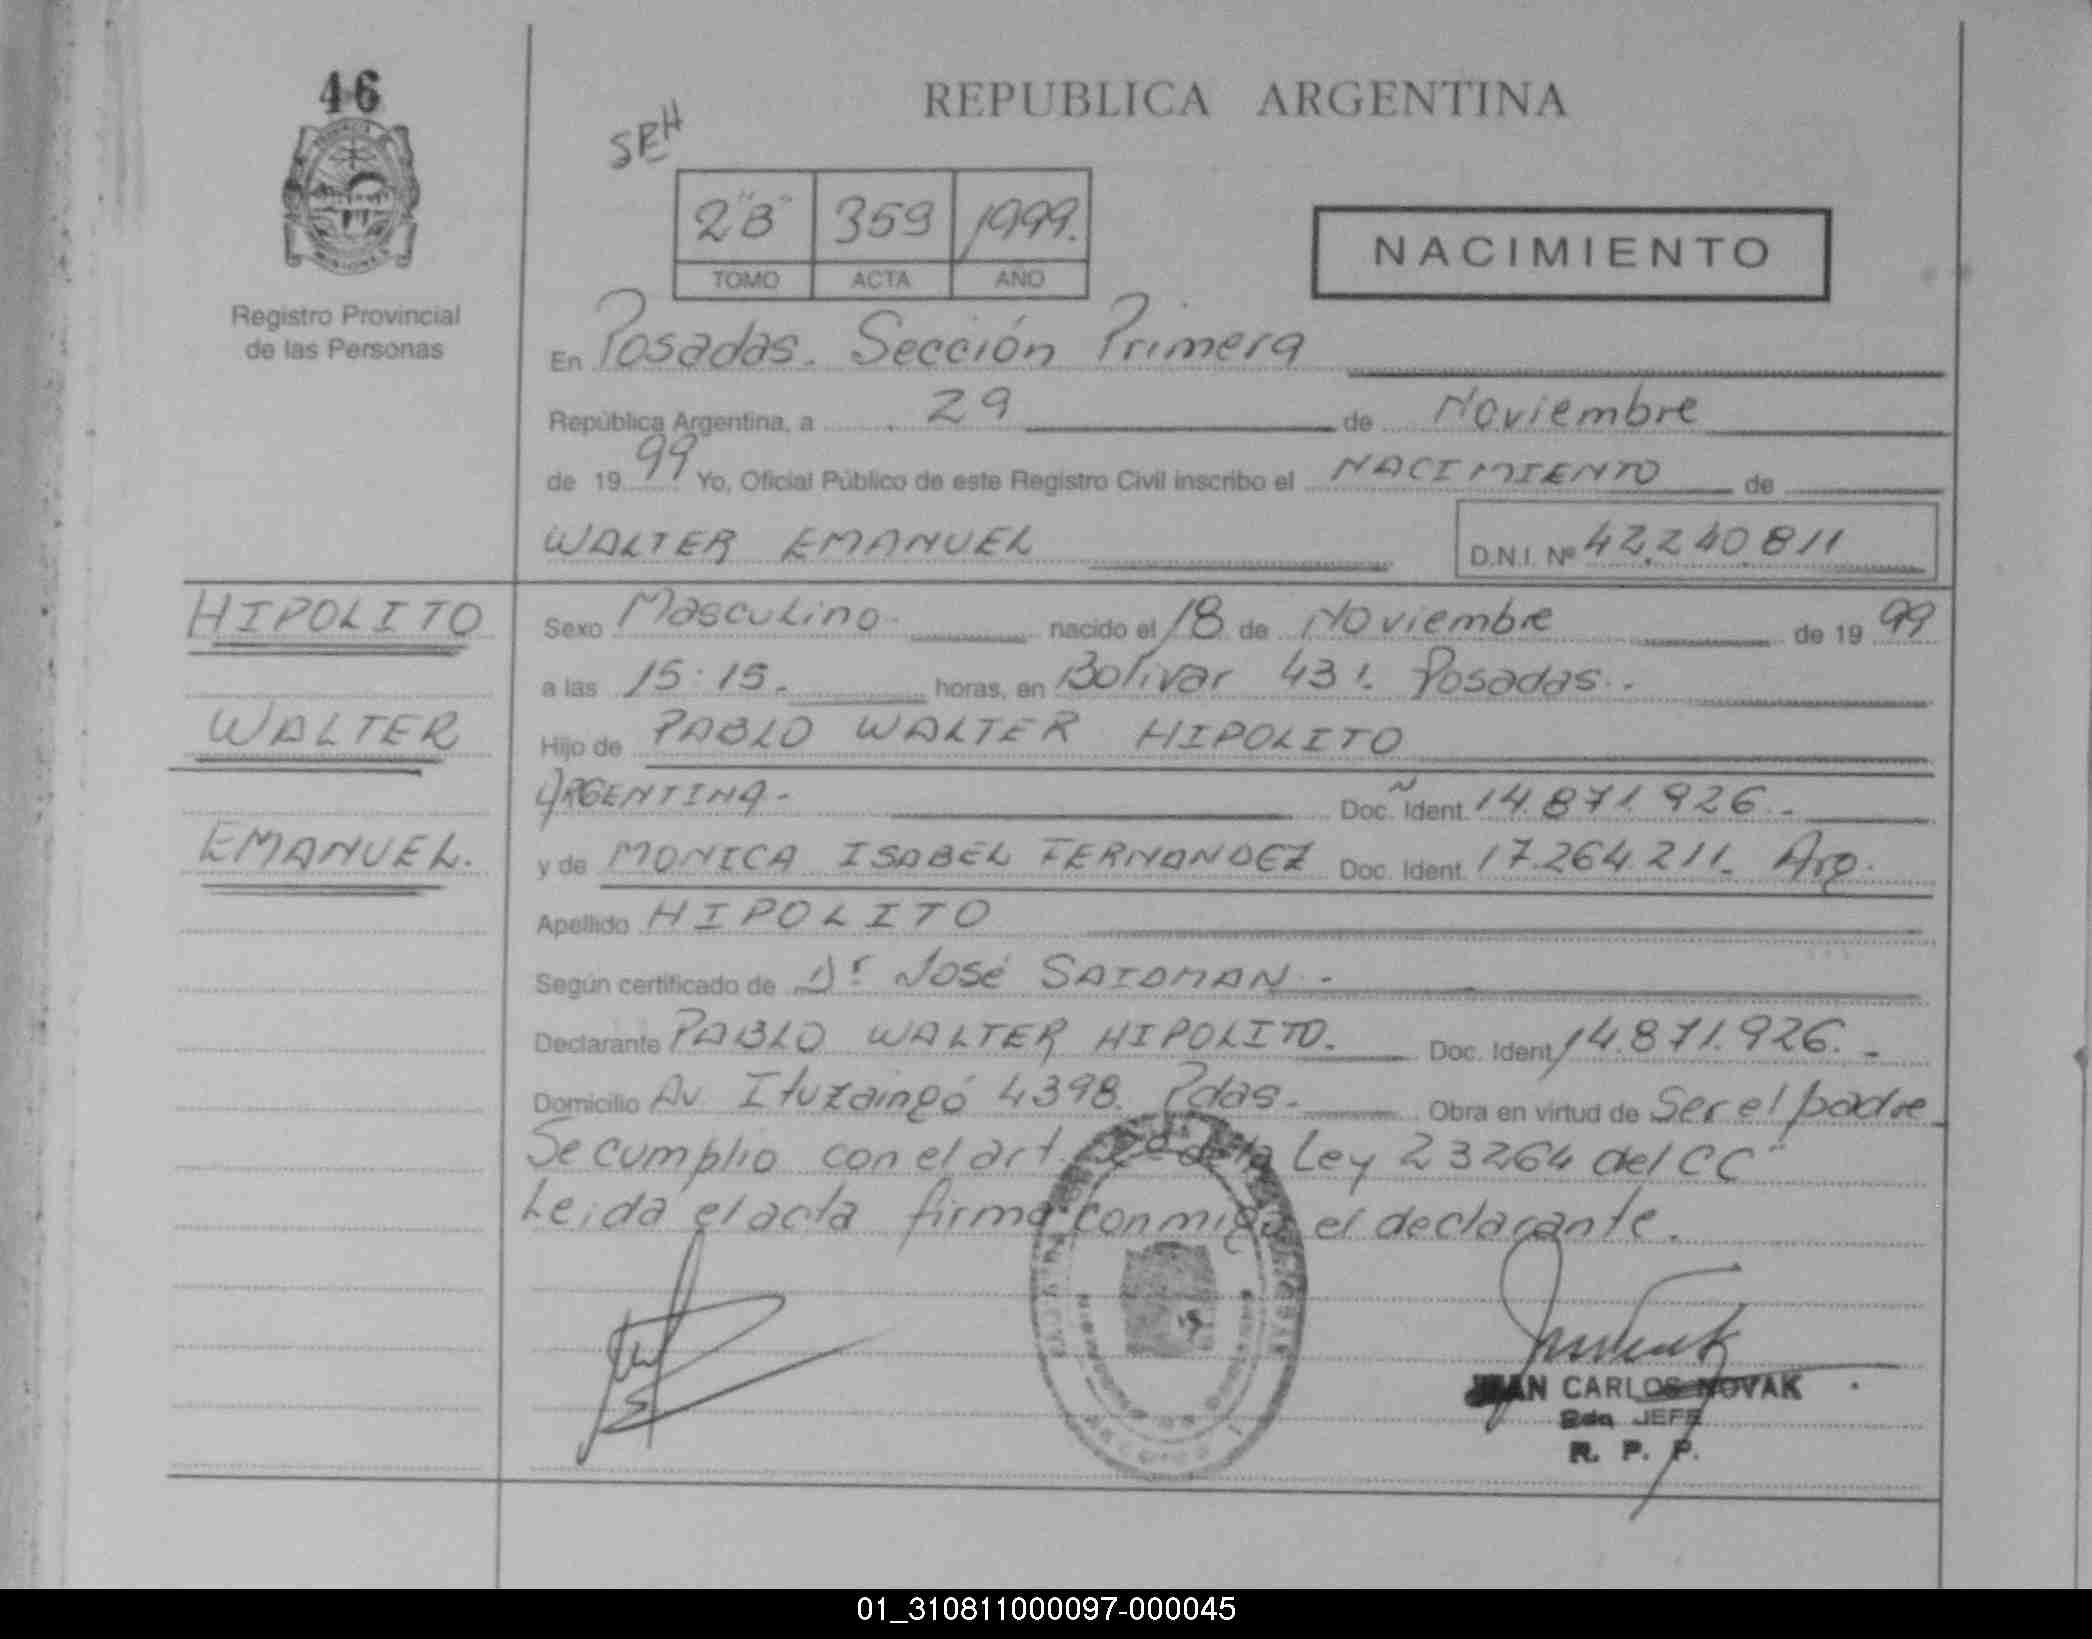 46
SEH
REPUBLICA ARGENTINA
2"B" 359 1999.
TOMO ACTA AÑO
NACIMIENTO
Registro Provincial
de las Personas
En Posadas. Sección Primera
República Argentina, a 29 de Noviembre
de 1999 Yo, Oficial Público de este Registro Civil inscribo el NACIMIENTO de
WALTER EMANUEL D.N.I. Nº 42.240.811
HIPOLITO
WALTER
EMANUEL.
Sexo Masculino. nacido el 18 de Noviembre de 1999
a las 15:15. horas, en Bolivar 431. Posadas.
Hijo de PABLO WALTER HIPOLITO
ARGENTINA. Doc. Ident. 14.871.926.
y de MONICA ISABEL FERNANDEZ Doc. Ident. 17.264.211. Arg.
Apellido HIPOLITO
Según certificado de Dr José
Declarante PABLO WALTER HIPOLITO. Doc. Ident. 14.871.926.
Domicilio Av Ituzaingó 4398. Pdas. Obra en virtud de Ser el padre
Se cumplio con el art. de la Ley 23264 del CC"
Leida el acta firma conmigo el declarante.
JUAN CARLOS NOVAK
2do JEFE
R. P. P.
01_310811000097-000045